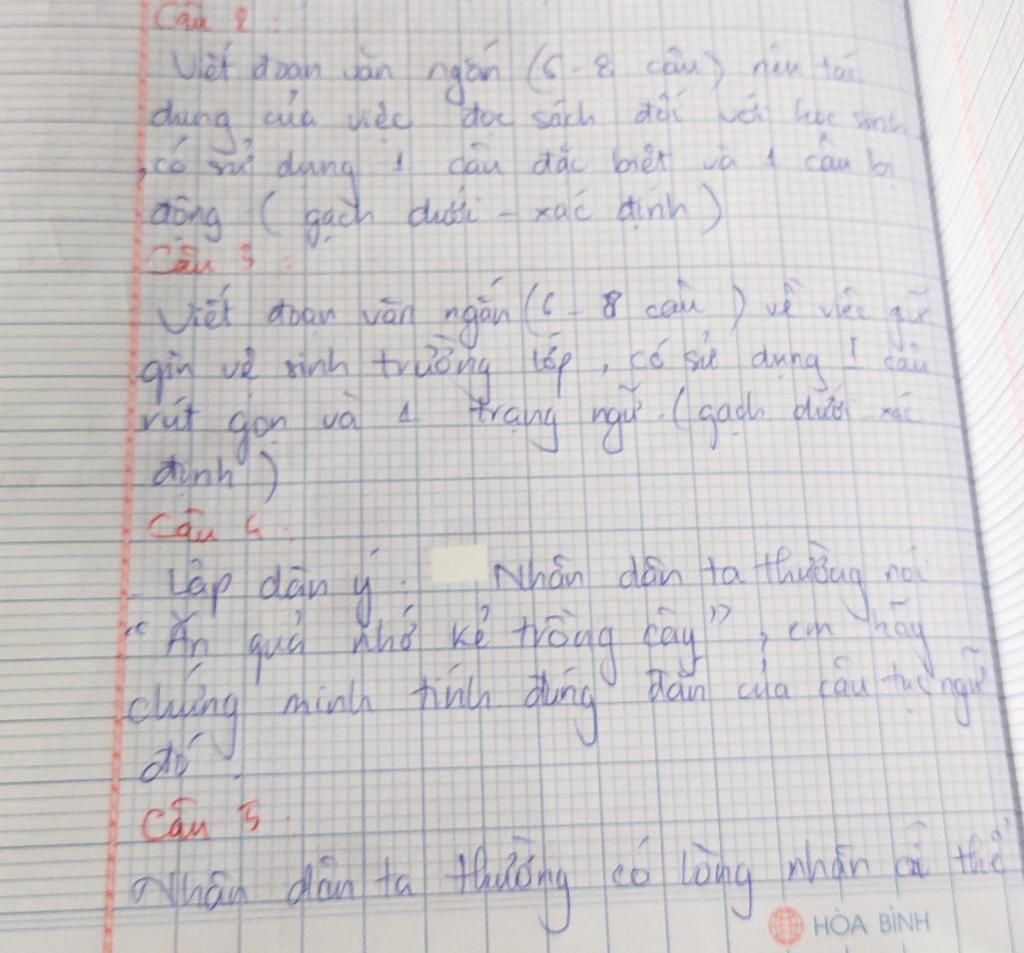 Câu 2:
Viết đoạn văn ngắn (6-8 câu) nêu tác
dụng của việc đọc sách đối với học sinh
, có sử dụng 1 câu đặc biệt và 1 câu bị
động (gạch dưới - xác định)
Câu 3:
Viết đoạn văn ngắn (6-8 câu) về việc giữ
gìn vệ sinh trường lớp, có sử dụng 1 câu
rút gọn và 1 trạng ngữ. (gạch dưới xác
định)
Câu 4:
Lập dàn ý: Nhân dân ta thường nói
"Ăn quả nhớ kẻ trồng cây", em hãy
chứng minh tính đúng đắn của câu tục ngữ
đó.
Câu 5.
Nhân dân ta thường có lòng nhân ái thể
HÒA BÌNH